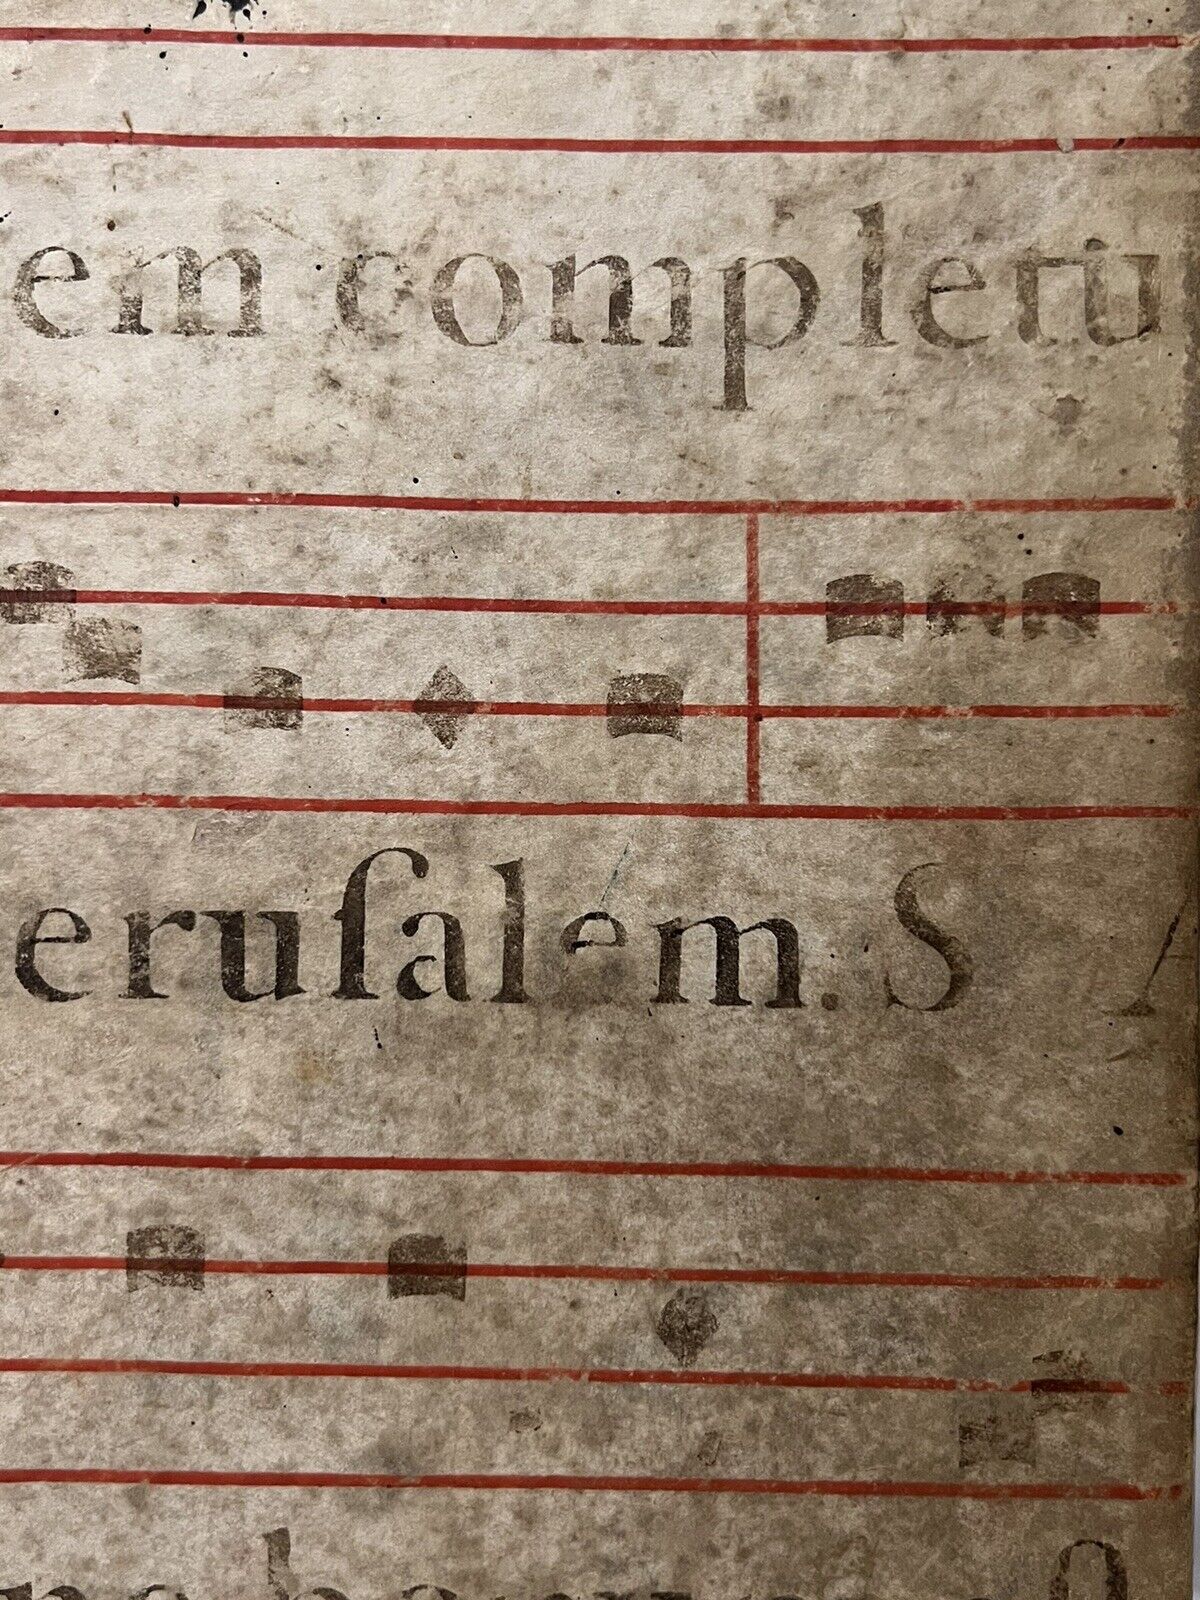 em completū
eruſalém. S A